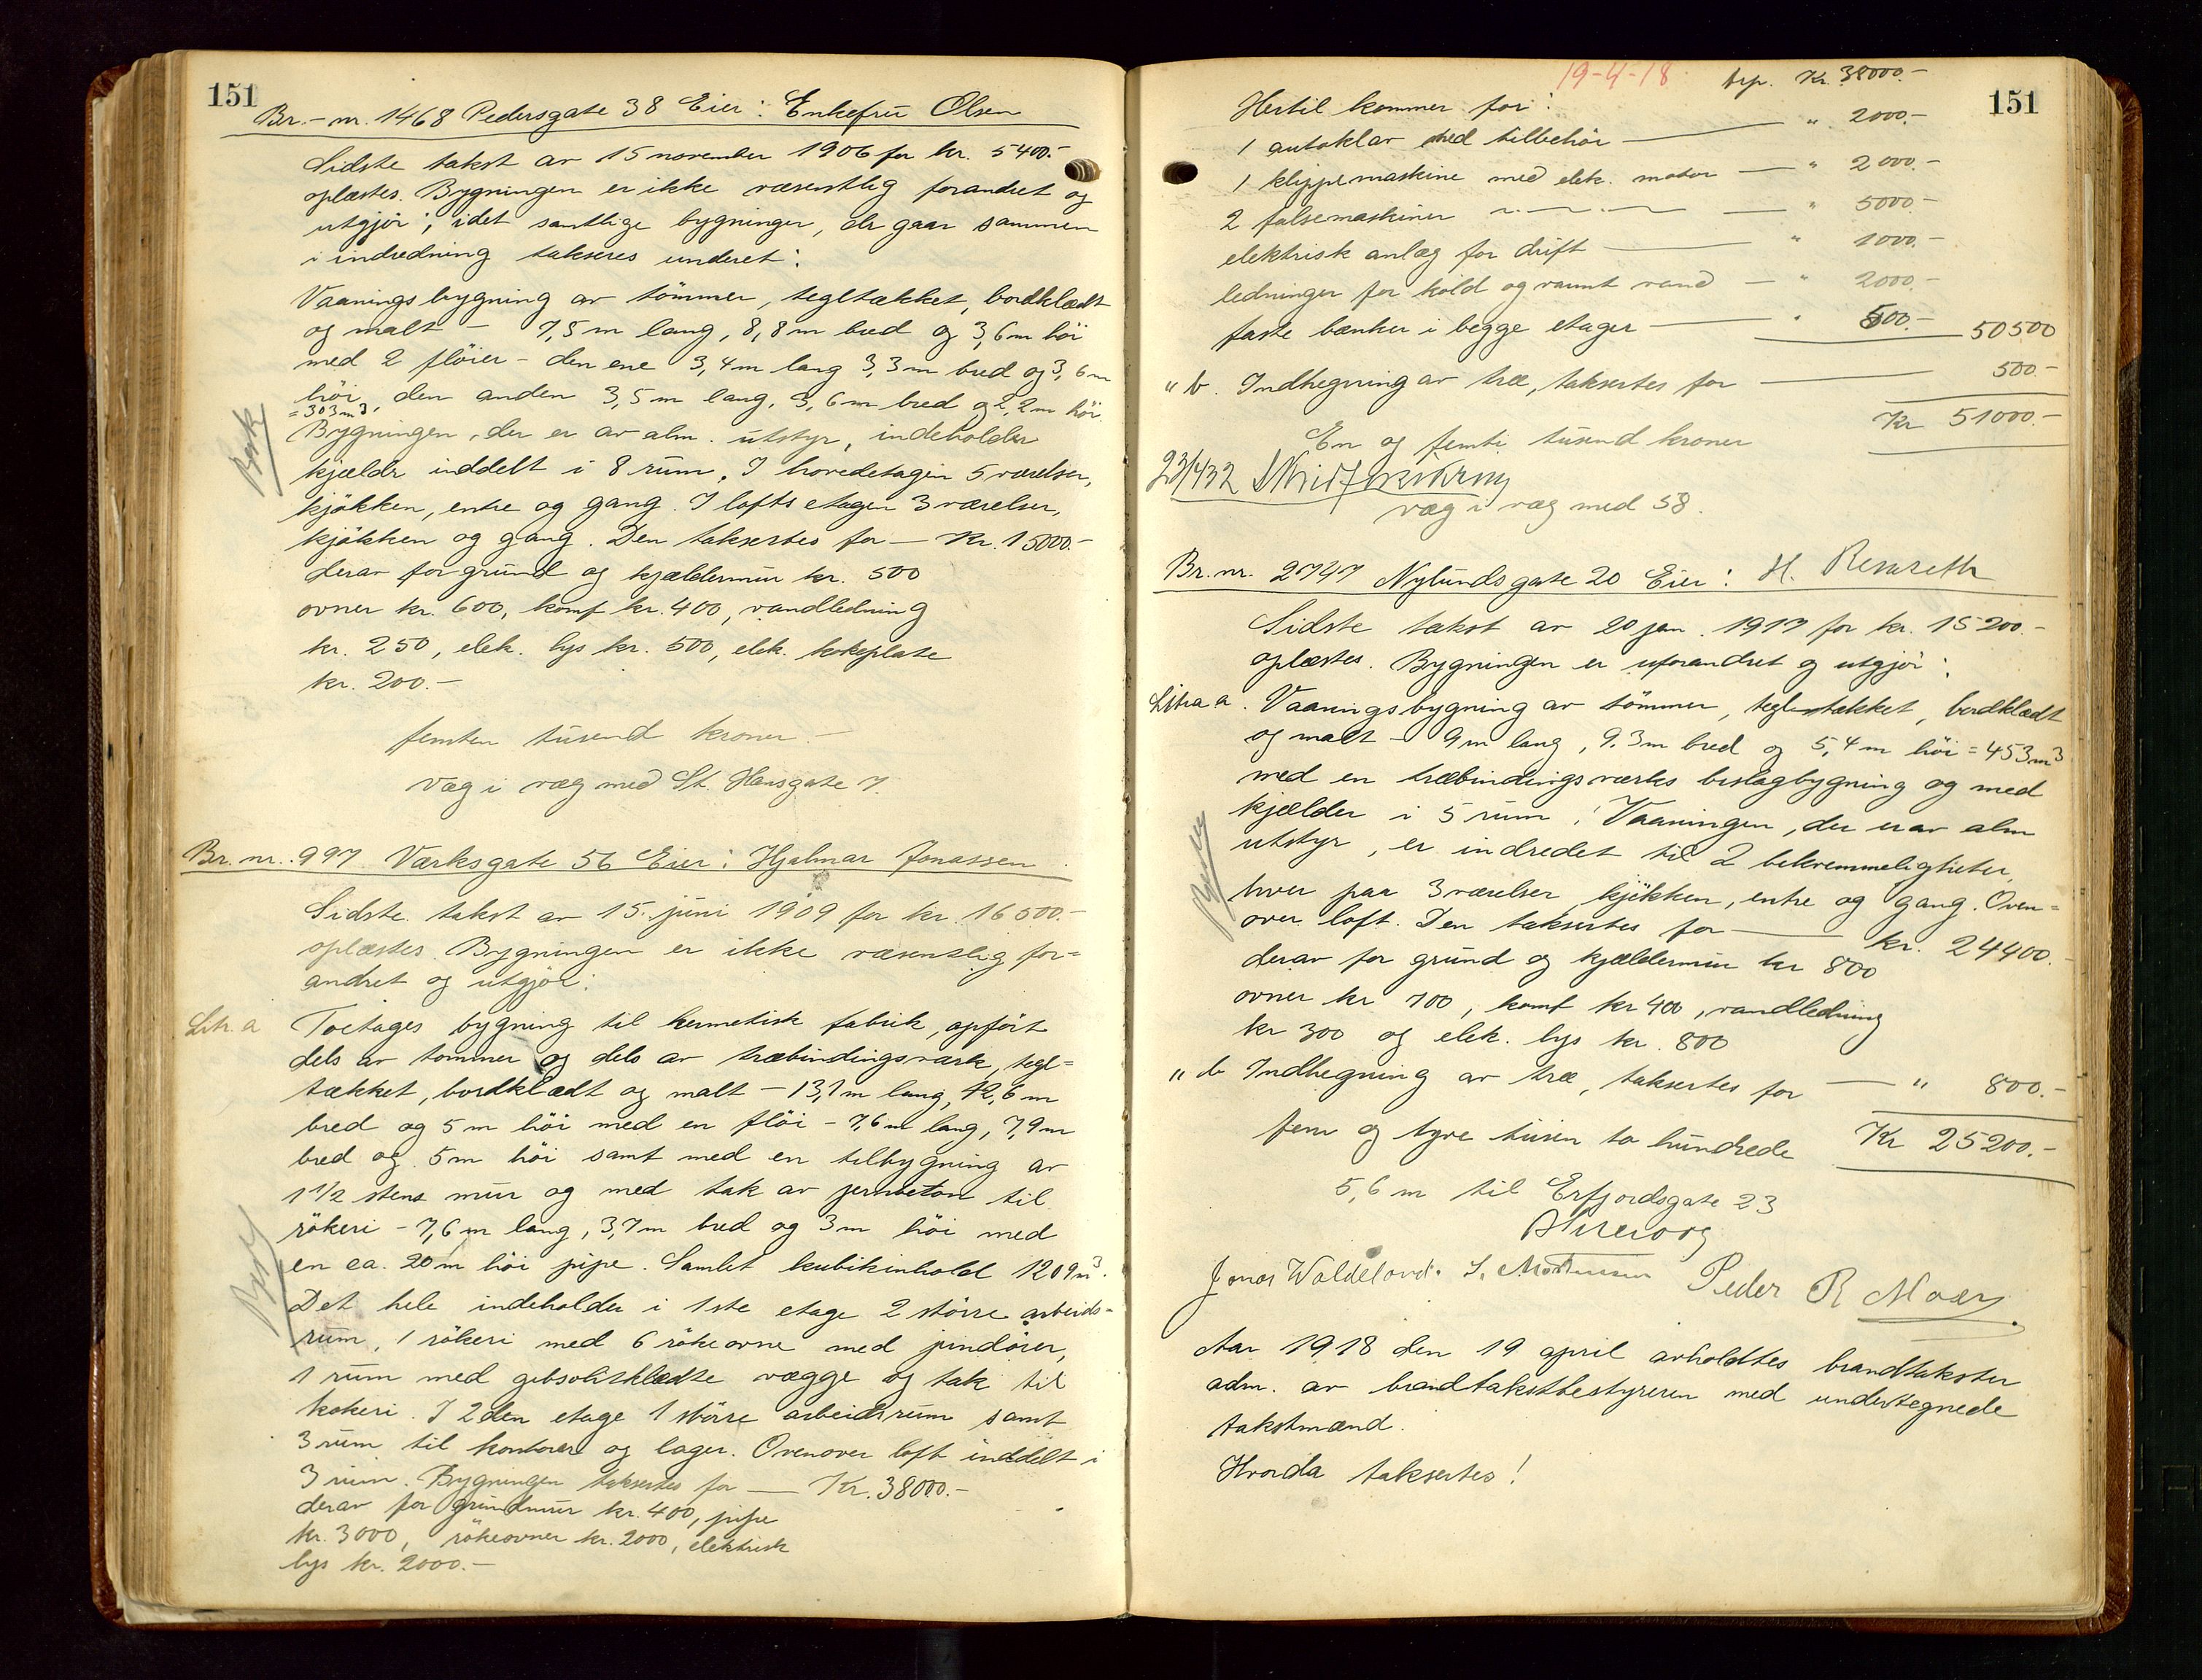 151
Br.-nr. 1468 Pedersgate 38 Eier: Enkefru Olsen
Sidste takst av 15 november 1906 for kr. 5400.-
oplæstes. Bygningen er ikke væsentlig forandret og
utgjör; idet samtlige bygninger, der gaar sammen
i indredning takseres underet:
Vaaningsbygning av tömmer, tegltækket, bordklædt
og malt - 7,5 m lang, 8,8 m bred og 3,6 m höi
med 2 flöier - den ene 3,4 m lang 3,3 m bred og 3,6 m
höi, den anden 3,5 m lang, 3,6 m bred og 2,2 m höi.
= 303 m³
Bygningen, der er av alm. utstyr, indeholder
kjælder inddelt i 8 rum. I hovedetagen 5 værelser,
kjökken, entre og gang. I loftsetagen 3 værelser,
kjökken og gang. Den taksertes for — Kr. 15000.-
derav for grund og kjældermur kr. 500
ovner kr. 600, komf kr. 400, vandledning
kr. 250, elek. lys kr. 500, elek. kokeplate
kr. 200.-
femten tusend kroner.-
Væg i væg med St. Hansgate 7.
Br. nr. 997 Værksgate 56 Eier: Hjalmar Jonassen
Sidste takst av 15. juni 1909 for kr. 16500.-
oplæstes. Bygningen er ikke væsentlig for=
andret og utgjör:
Litr. a Toetages bygning til hermetisk fabrik, opfört
dels av tømmer og dels av træbindingsværk, tegl=
tækket, bordklædt og malt - 13,1 m lang, 12,6 m
bred og 5 m höi med en flöi - 7,6 m lang, 7,9 m
bred og 5 m höi samt med en tilbygning av
1 1/2 stens mur og med tak av jernbeton til
rökeri - 7,6 m lang, 3,7 m bred og 3 m höi med
en ca. 20 m höi pipe. Samlet kubikinhold 1209 m³.
Det hele indeholder i 1ste etage 2 större arbeids=
rum, 1 rökeri med 6 rökeovne med jerndörer,
1 rum med gibsolitklædte vægge og tak til
kokeri. I 2den etage 1 större arbeidsrum samt
3 rum til kontorer og lager. Ovenover loft inddelt i
3 rum. Bygningen taksertes for — Kr. 38000.-
derav for grundmur kr. 400, pipe
kr. 3000, rökeovner kr. 2000, elektrisk
lys kr. 2000.-
19-4-18
trp. Kr. 38000.-
151
Hertil kommer for:
1 autoklav med tilbehör — " 2000.-
1 klippemaskine med elek. motor — " 2000.-
2 falsemaskiner — " 5000.-
elektrisk anlæg for drift — " 1000.-
ledninger for kold og varmt vand — " 2000.-
faste bænker i begge etager — " 500.- 50500
" b. Indhegning av træ, taksertes for — 500.-
Kr 51000.-
En og femti tusend kroner
23/4 32
væg i væg med 58.
Br. nr. 2747 Nylundsgate 20 Eier: H.
Sidste takst av 20 jan. 1917 for kr. 15200.-
oplæstes. Bygningen er uforandret og utgjör:
Litra a. Vaaningsbygning av tömmer, tegltækket, bordklædt
og malt - 9 m lang, 9.3 m bred og 5,4 m höi = 453 m³
med en træbindingsværks bislagbygning og med
kjælder i 5 rum. Vaaningen, der er av alm
utstyr, er indredet til 2 bekvemmeligheter,
hver paa 3 værelser, kjökken, entre og gang. Oven=
over loft. Den taksertes for — kr. 24400.
derav for grund og kjældermur kr 800
ovner kr 700, komf kr 400, vandledning
kr 300 og elek. lys kr. 800
" b Indhegning av træ, taksertes for — " 800.-
fem og tyve tusen to hundrede Kr 25200.-
5,6 m til Erfjordsgate 23
Jonas Waldeland. S. Mortensen Peder R Moen
Aar 1918 den 19 april avholdtes brandtakster
adm. av brandtakstbestyreren med undertegnede
takstmænd.
Hvorda taksertes!